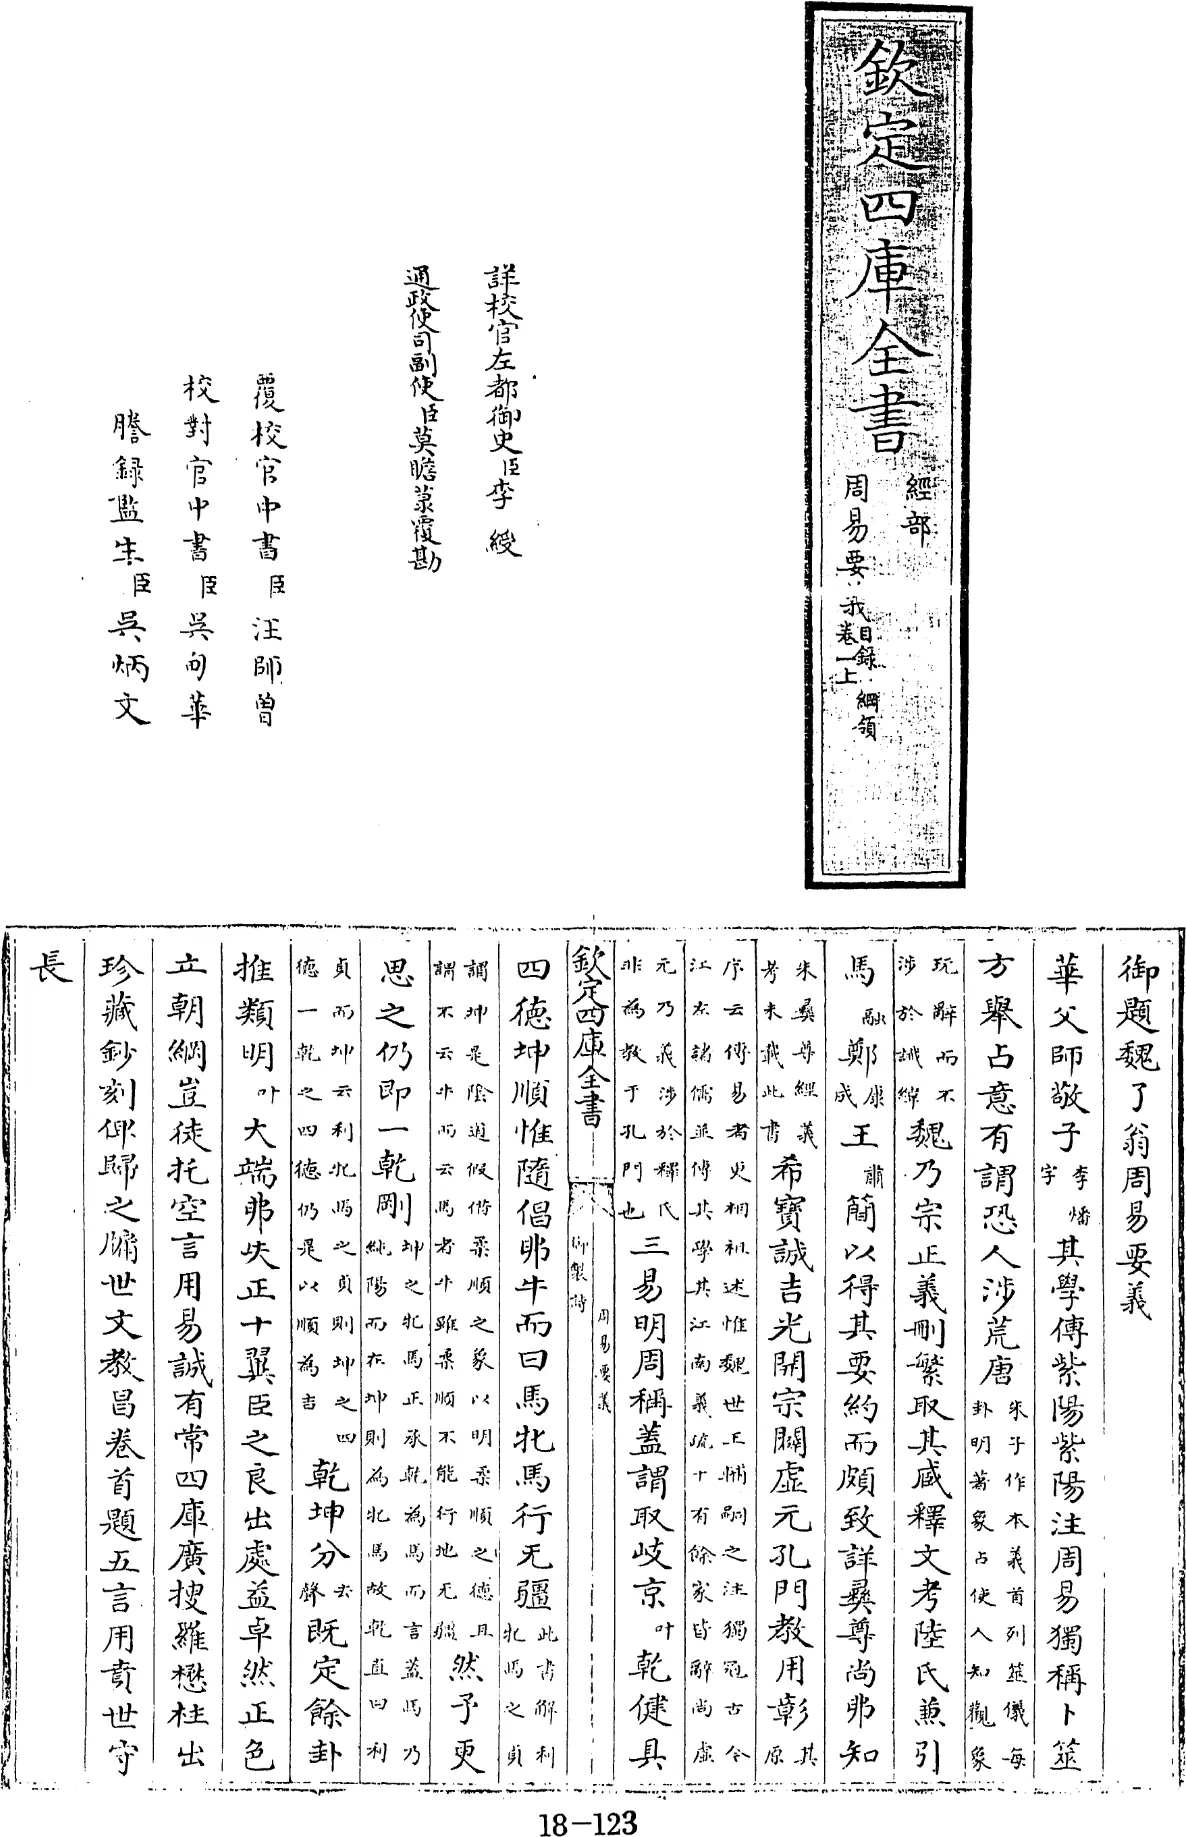 欽定四庫全書
經部
周易要義 目錄 綱領
卷一上
詳校官左都御史臣李綬
通政使司副使臣莫瞻菉覆勘
覆校官中書臣汪師曾
校對官中書臣吳甸華
謄錄監生臣吳炳文
御題魏了翁周易要義
華父師敬子李燔
字其學傳紫陽紫陽注周易獨稱卜筮
方舉占意有謂恐人涉荒唐朱子作本義首列筮儀每
卦明著象占使人知觀象
玩辭而不
涉於誠緯魏乃宗正義刪繁取其臧釋文考陸氏兼引
馬融鄭康
成王肅簡以得其要約而頗致詳彝尊尚弗知
朱彝尊經義
考未載此書希寶誠吉光開宗闢虛元孔門教用彰其
原
序云傳易者更相祖述惟魏世王輔嗣之注獨冠古今
江左諸儒並傳其學其江南義疏十有餘家皆辭尚虛
元乃義涉於釋氏
非為教于孔門也三易明周稱蓋謂取岐京叶乾健具
欽定四庫全書
御製詩
周易要義
四德坤順惟隨倡弗牛而曰馬牝馬行无疆此書解利
牝馬之貞
謂坤是陰道假借柔順之象以明柔順之德且
謂不云牛而云馬者牛雖柔順不能行地无疆然予更
思之仍即一乾剛坤之牝馬正承乾為馬而言蓋馬乃
純陽而在坤則為牝馬故乾直曰利
貞而坤云利牝馬之貞則坤之四
德一乾之四德仍是以順為吉乾坤分去
聲既定餘卦
推類明叶大端弗失正十翼臣之良出處益卓然正色
立朝綱豈徒托空言用易誠有常四庫廣搜羅懋柱出
珍藏鈔刻仰歸之牖世文教昌卷首題五言用賁世守
長
18-123